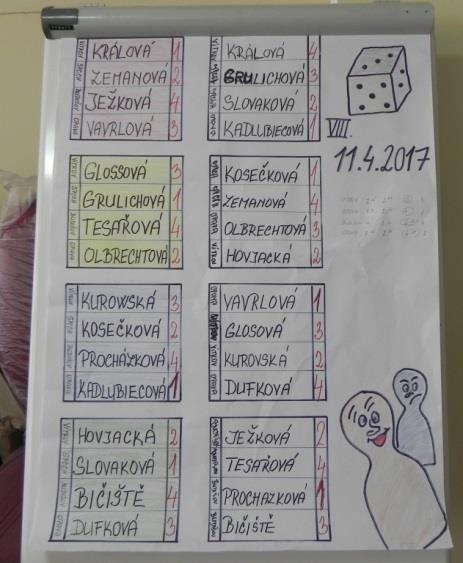 KRÁLOVÁ 1
ZEMANOVÁ 2
JEŽKOVÁ 4
VAVRLOVÁ 3
GLOSSOVÁ 3
GRULICHOVÁ 1
TESAŘOVÁ 4
OLBRECHTOVÁ 2
KUROWSKÁ 3
KOSEČKOVÁ 2
PROCHÁZKOVÁ 4
KADLUBIECOVÁ 1
HOVJACKÁ 2
SLOVAKOVÁ 1
BIČIŠTĚ 4
DUFKOVÁ 3
KRÁLOVÁ 4
GRULICHOVÁ 3
SLOVAKOVÁ 2
KADLUBIECOVÁ 1
KOSEČKOVÁ 1
ZEMANOVÁ 4
OLBRECHTOVÁ 3
HOVJACKÁ 2
VAVRLOVÁ 1
GLOSOVÁ 3
KUROVSKÁ 2
DUFKOVÁ 4
JEŽKOVÁ 2
TESAŘOVÁ 4
PROCHAZKOVÁ 1
BIČIŠTĚ 3
VIII.
11.4.2017